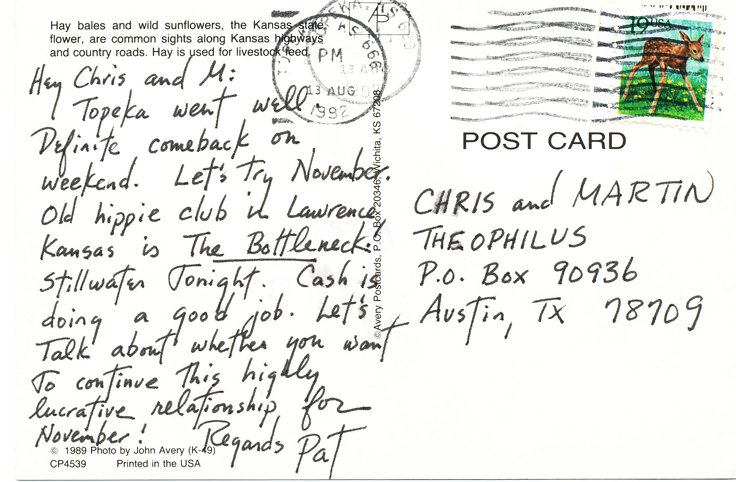 Hay bales and wild sunflowers, the Kansas state
flower, are common sights along Kansas highways
and country roads. Hay is used for livestock feed.
Hey Chris and M:
Topeka went well.
Definite comeback on
weekend. Let's Try November.
Old hippie club in Lawrence,
Kansas is The Bottleneck.
Stillwater Tonight. Cash is
doing a good job. Let's
Talk about whether you want
To continue This highly
lucrative relationship for
November! Regards
Pat
© 1989 Photo by John Avery (K-49)
CP4539 Printed in the USA
©Avery Postcards, P.O. Box 20346, Wichita, KS 67208
TOPEKA, KS 666
PM
13 AUG
1992
19 USA
POST CARD
CHRIS and MARTIN
THEOPHILUS
P.O. Box 90936
Austin, TX 78709